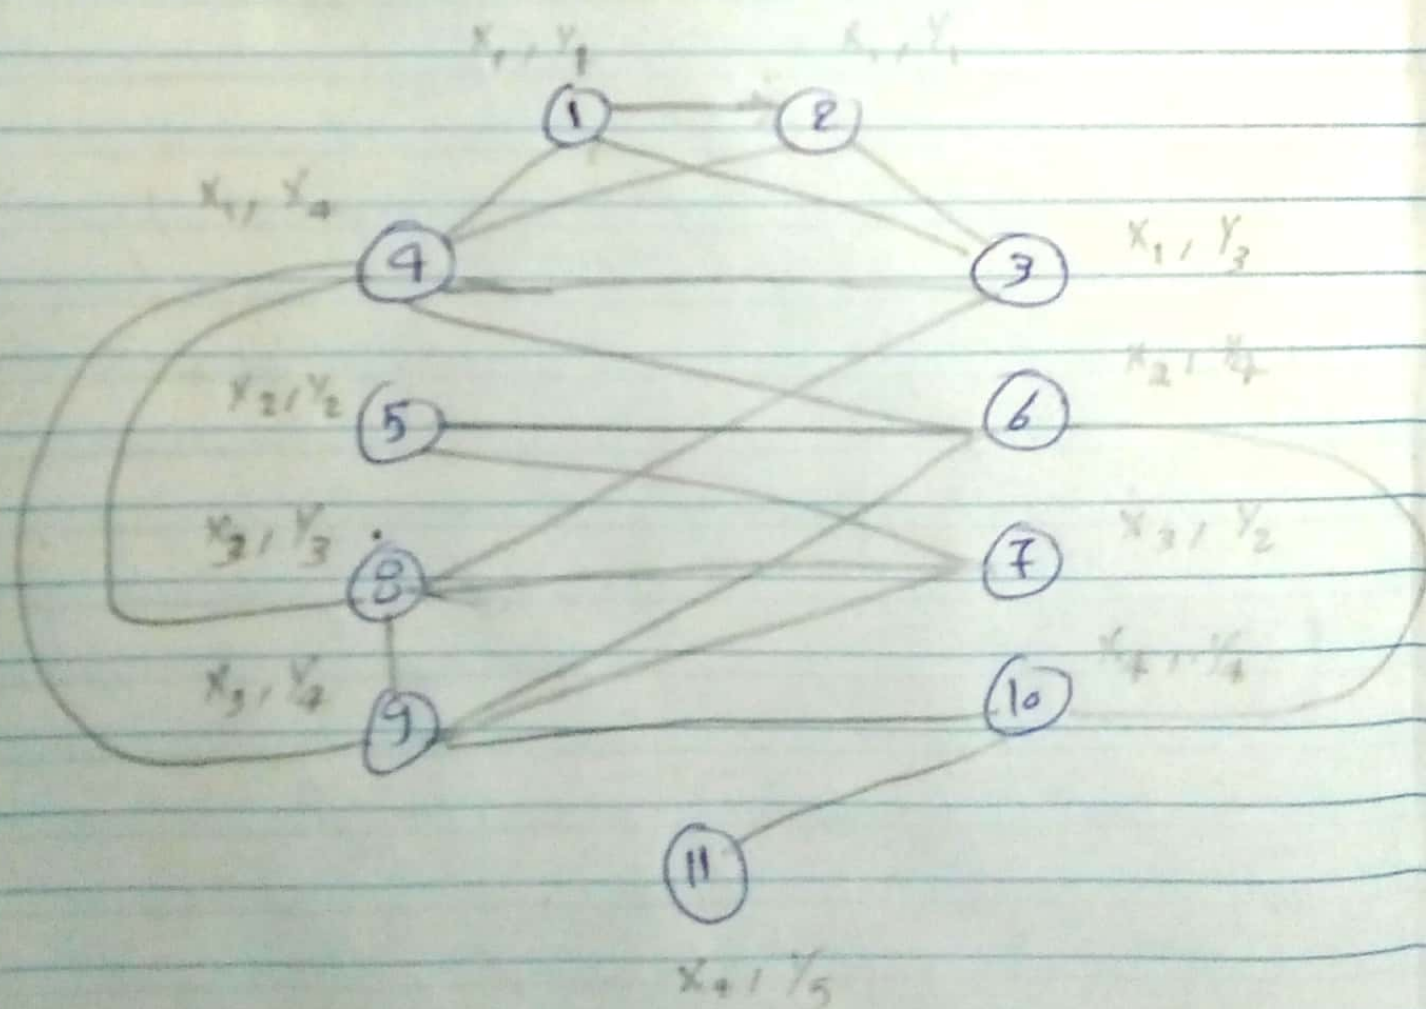 X₁, Y₁ X₁, Y₁
1 2
X₁, Y₄
4 3 X₁, Y₃
X₂, Y₄
X₂, Y₂ 5 6
X₃, Y₃ 8 7 X₃, Y₂
X₃, Y₄ 9 10 X₄, Y₄
11
X₄, Y₅